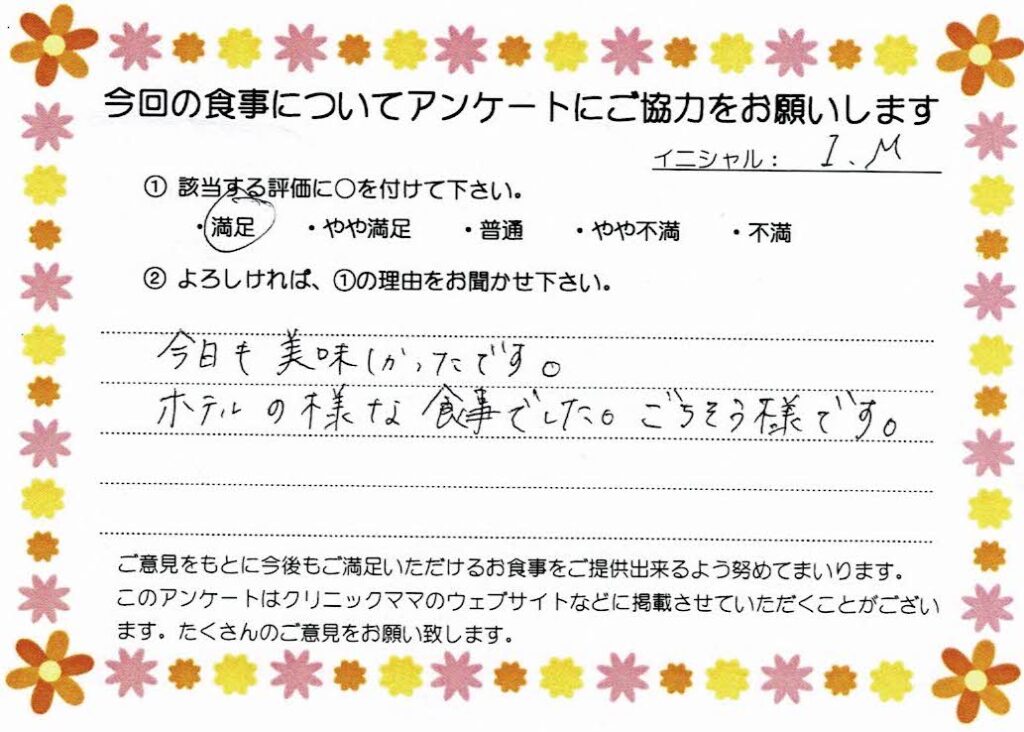 今回の食事についてアンケートにご協力をお願いします
イニシャル： I.M
① 該当する評価に○を付けて下さい。
・満足 ・やや満足 ・普通 ・やや不満 ・不満
② よろしければ、①の理由をお聞かせ下さい。
今日も美味しかったです。
ホテルの様な食事でした。ごちそう様です。
ご意見をもとに今後もご満足いただけるお食事をご提供出来るよう努めてまいります。
このアンケートはクリニックママのウェブサイトなどに掲載させていただくことがござい
ます。たくさんのご意見をお願い致します。